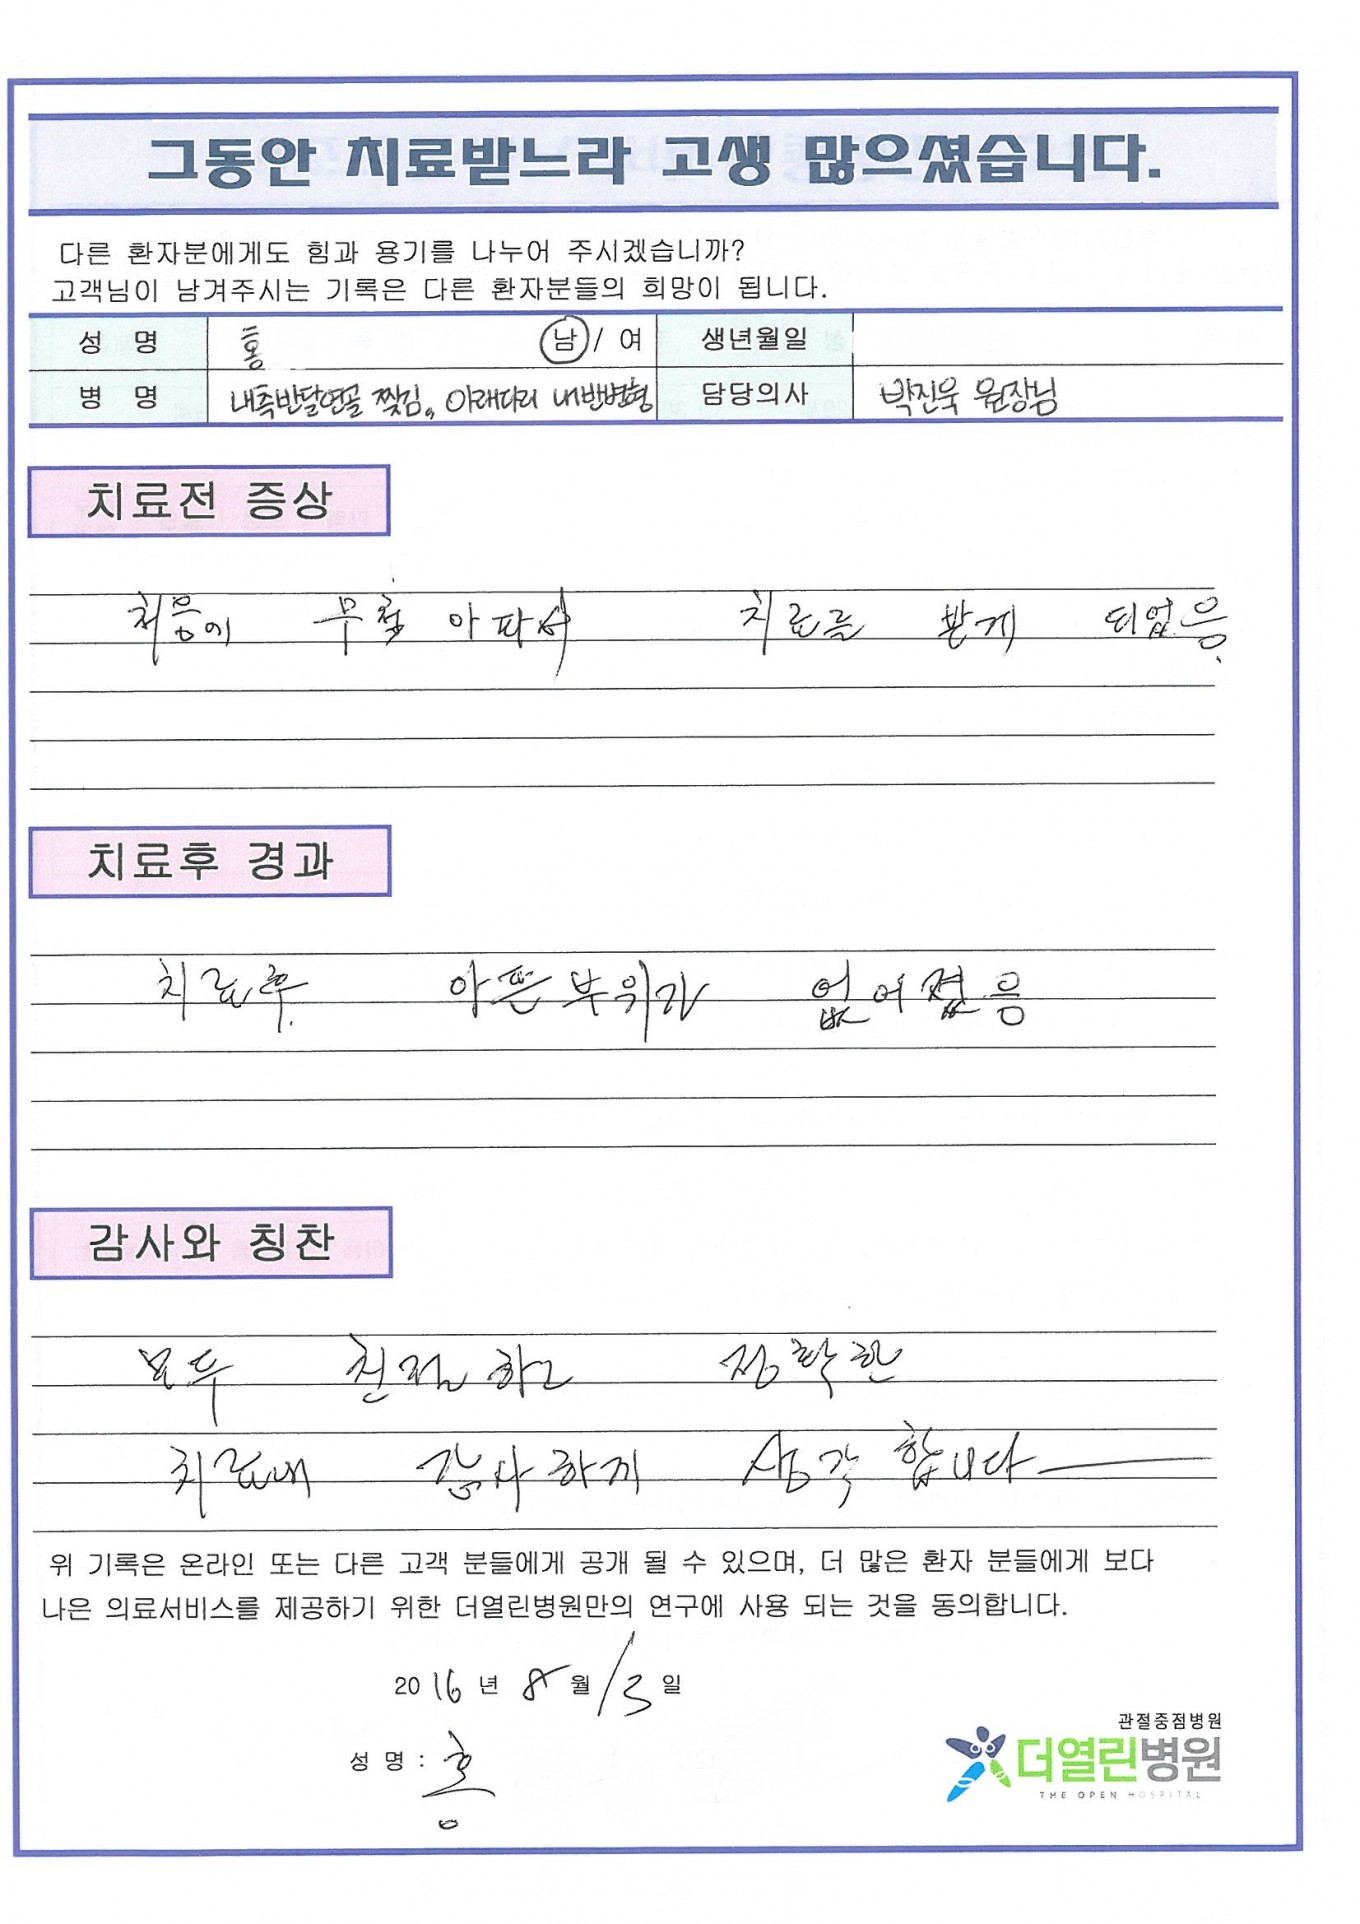 그동안 치료받느라 고생 많으셨습니다.
다른 환자분에게도 힘과 용기를 나누어 주시겠습니까?
고객님이 남겨주시는 기록은 다른 환자분들의 희망이 됩니다.
성 명 홍 남 / 여 생년월일
병 명 내측반달연골 찢김, 아래다리 내반변형 담당의사 박진욱 원장님
치료전 증상
처음에 무척 아파서 치료를 받게 되었음.
치료후 경과
치료후 아픈부위가 없어졌음
감사와 칭찬
모두 친절하고 정확한
치료에 감사하게 생각합니다
위 기록은 온라인 또는 다른 고객 분들에게 공개 될 수 있으며, 더 많은 환자 분들에게 보다
나은 의료서비스를 제공하기 위한 더열린병원만의 연구에 사용 되는 것을 동의합니다.
2016년 8월 13일
성 명 : 홍
관절중점병원
더열린병원
THE OPEN HOSPITAL